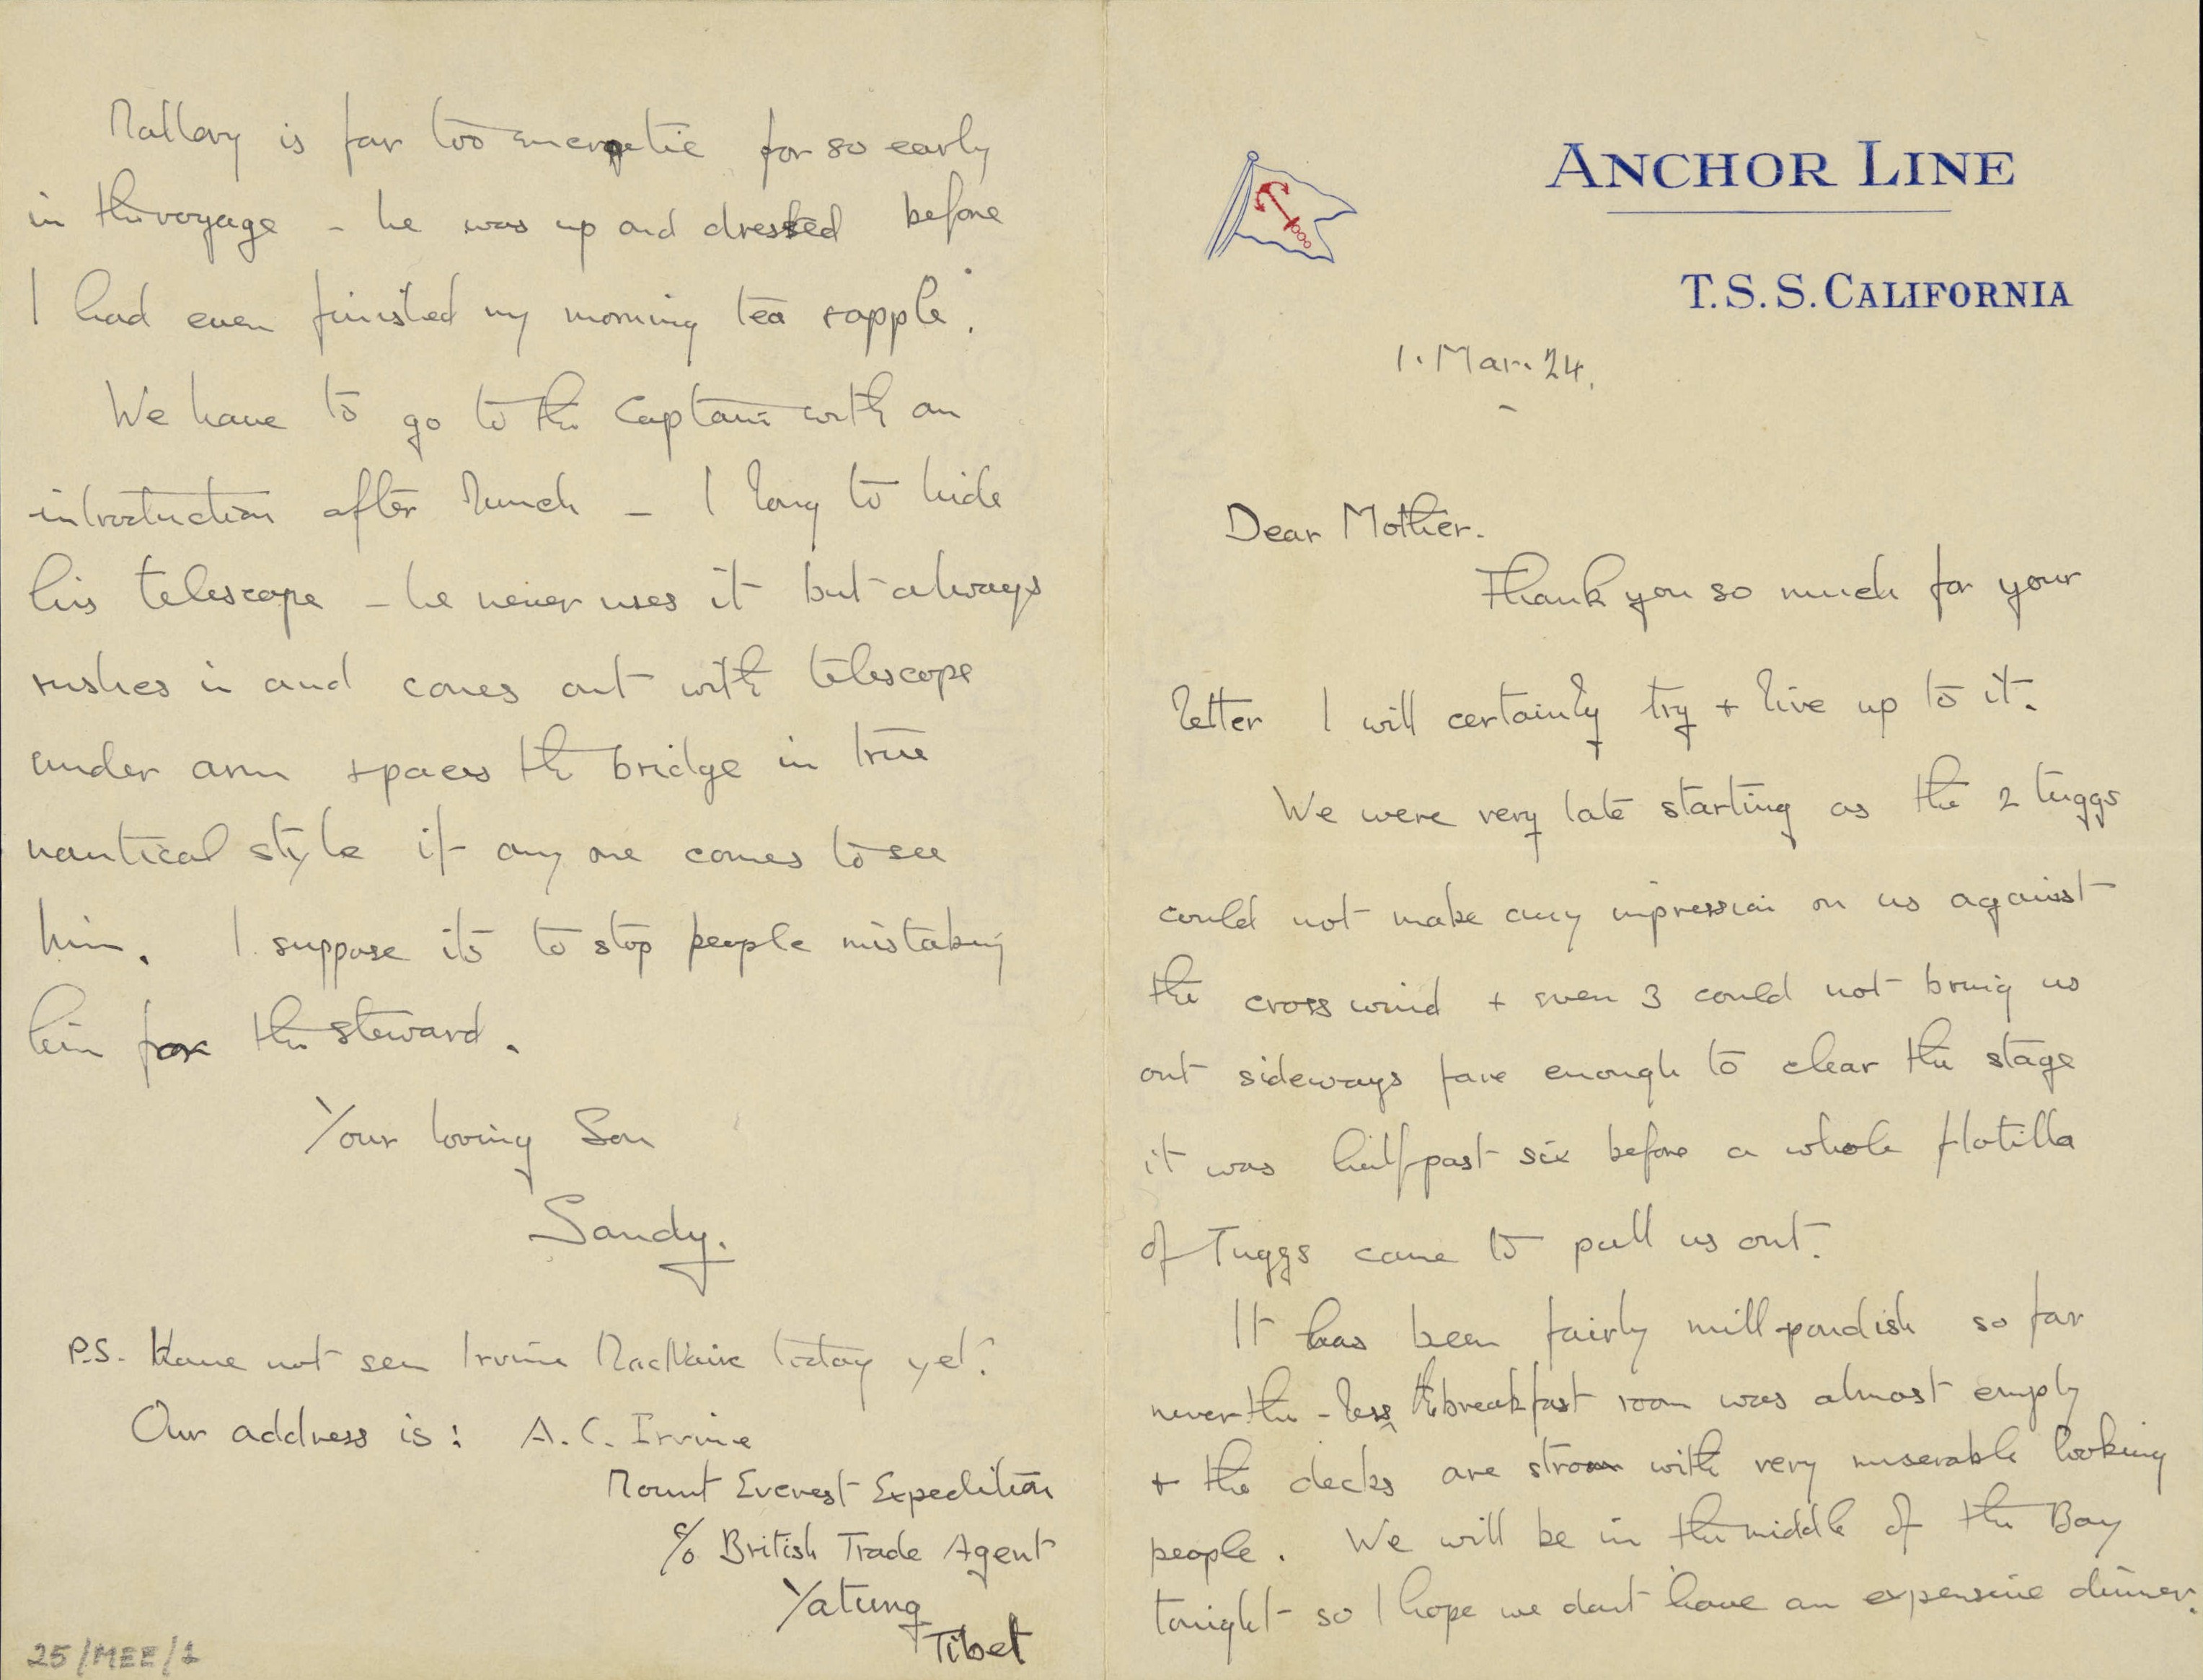 ANCHOR LINE
T.S.S. CALIFORNIA
1. Mar. 24.
Dear Mother.
Thank you so much for your
letter I will certainly try + live up to it.
We were very late starting as the 2 tuggs
could not make any impression on us against
the cross wind + even 3 could not bring us
out sideways fare enough to clear the stage
it was half past six before a whole flotilla
of Tuggs came to pull us out.
It has been fairly mill-pondish so far
never-the-less the breakfast room was almost empty
+ the decks are strown with very miserable looking
people. We will be in the middle of the Bay
tonight so I hope we dont have an expensive dinner.
Mallory is far too energetic for so early
in the voyage - he was up and dressed before
I had even finished my morning tea + apple.
We have to go to the Captain with an
introduction after lunch - I long to hide
his telescope - he never uses it but always
rushes in and comes out with telescope
under arm + paces the bridge in true
nautical style if any one comes to see
him. I suppose its to stop people mistaking
him for the steward.
Your loving Son
Sandy.
P.S. Have not seen Irvine today yet.
Our address is: A. C. Irvine
Mount Everest Expedition
c/o British Trade Agent
Yatung
Tibet
25/MEE/1